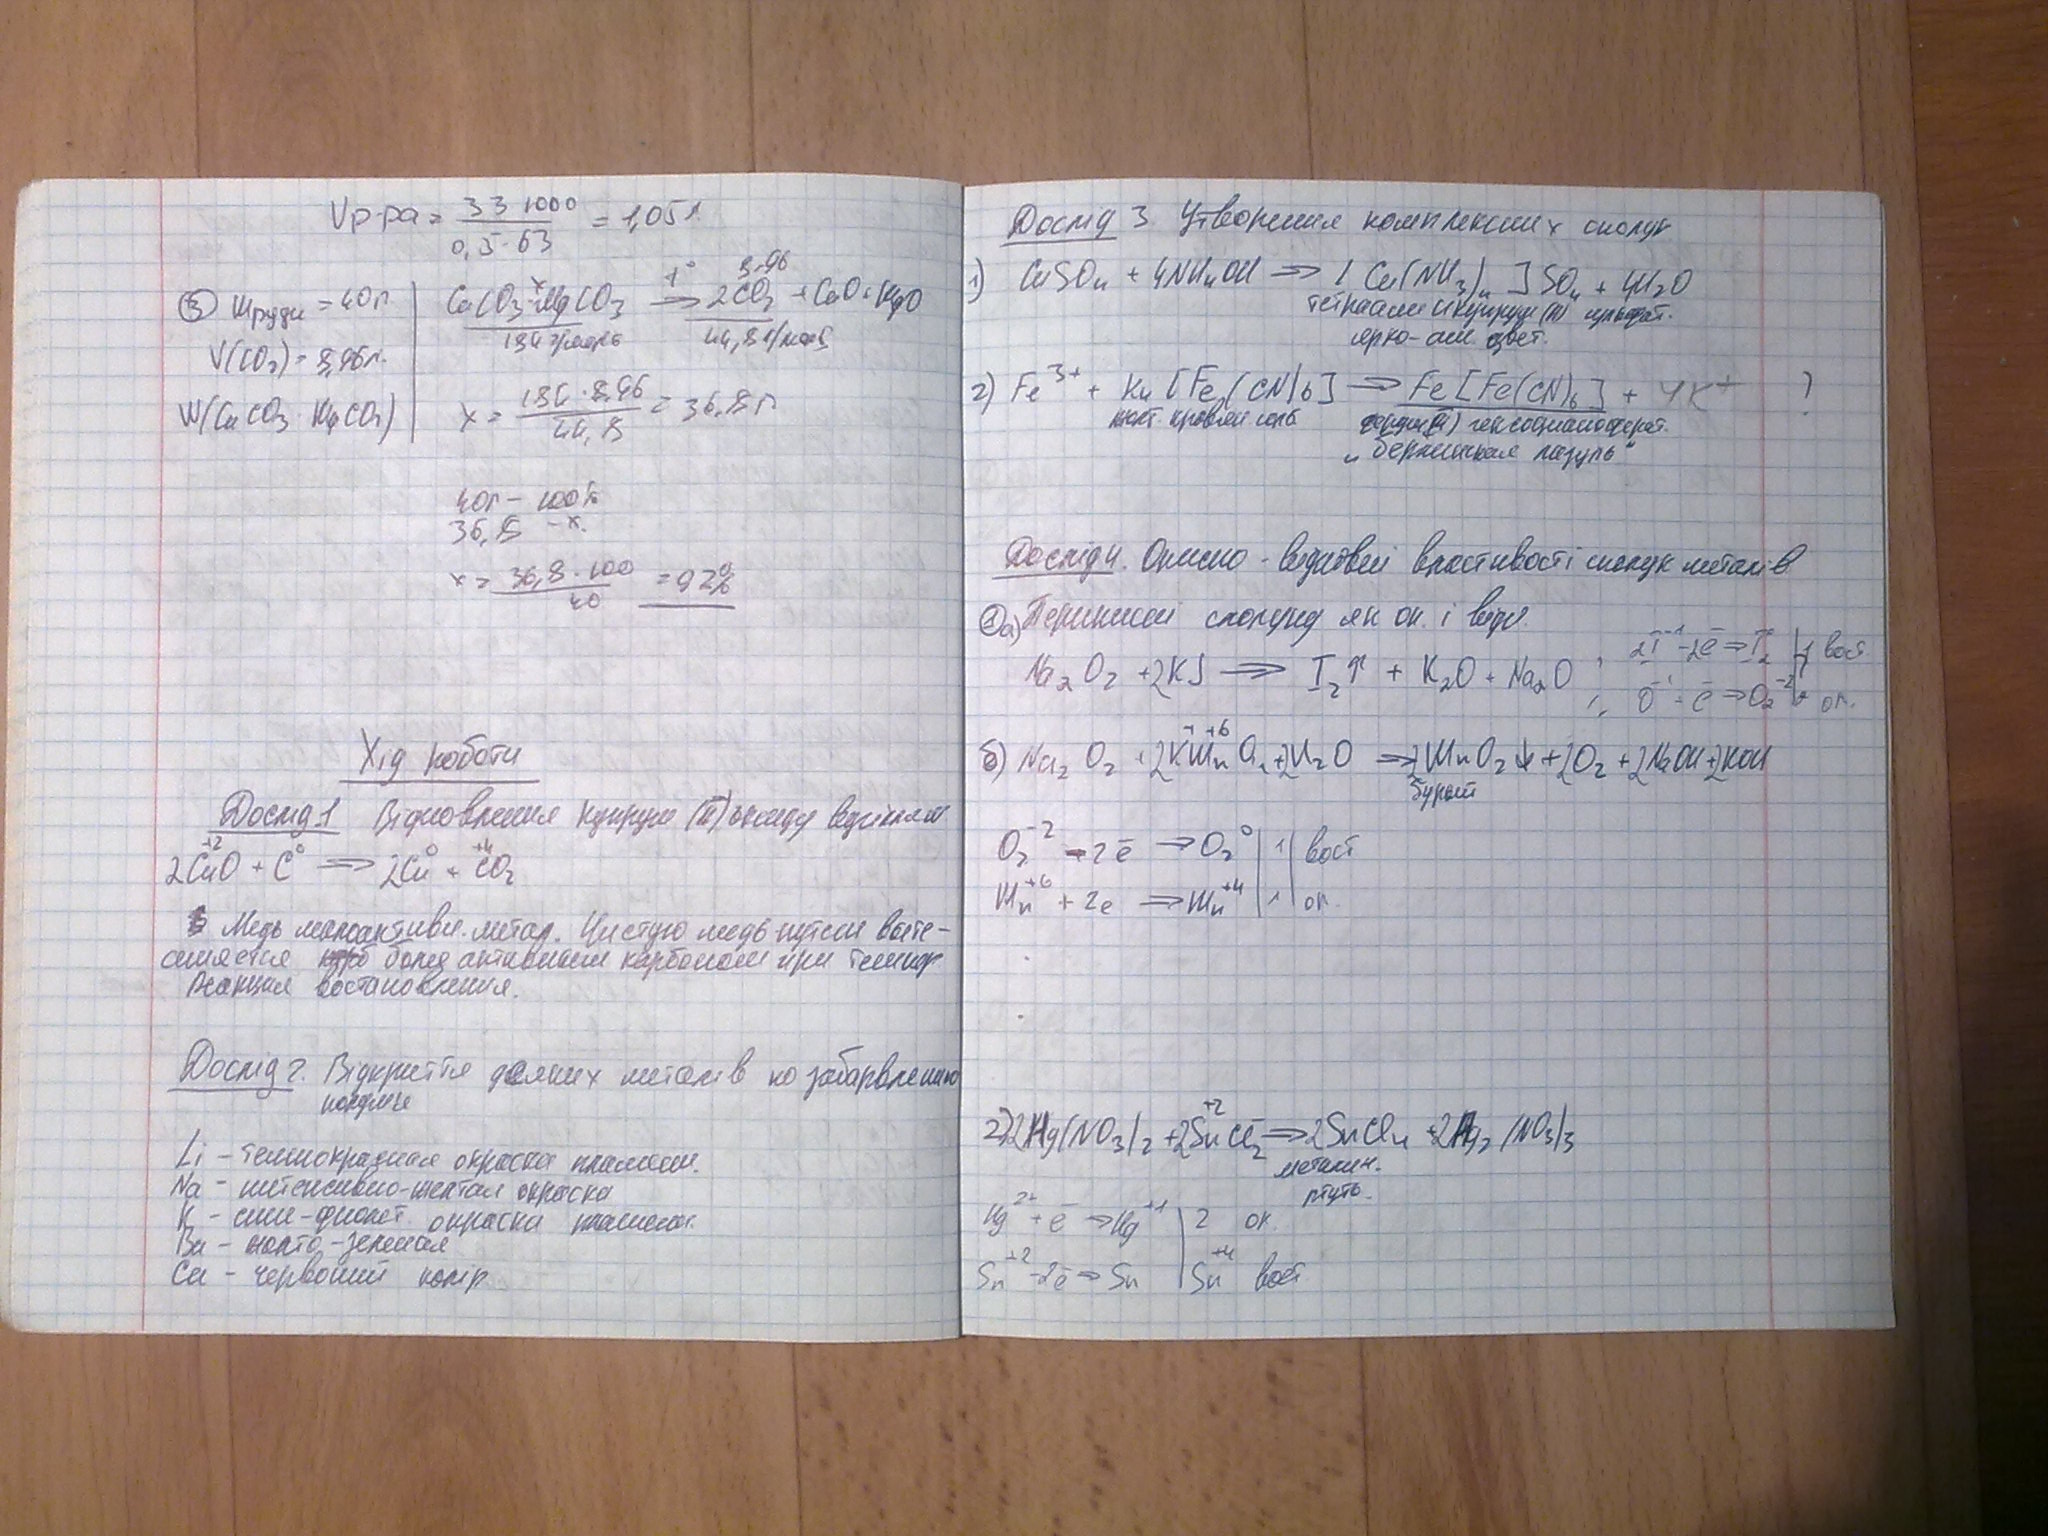 Vр-ра = 33 1000 / 0,5·63 = 1,05 л
⑤ mруди = 40 г.
V(CO₂) = 8,96 л.
W(CaCO₃·MgCO₃)
x 8,96
CaCO₃·MgCO₃ t°→ 2CO₂ + CaO + MgO
184 г/моль 44,8 л/моль
x = 184·8,96 / 44,8 = 36,8 г
40 г – 100%
36,8 – x.
x = 36,8·100 / 40 = 92%
Хід роботи
Дослід 1 Відновлення купрум (II) оксиду
+2 0 0 +4
2CuO + C ⇒ 2Cu + CO₂
Медь малоактивн. метал. Чистую медь
более активным карбоном при темпер
Реакция востановления.
Дослід 2. Відкриття деяких металів по забарвленню
полум'я
Li – темнокрасная окраска пламени.
Na – интенсивно-желтая окраска
K – сине-фиолет. окраска пламени.
Ba – жолто-зеленая
Ca – червоний колір
Дослід 3. Утворення комплексних сполук
1) CuSO₄ + 4NH₄OH ⇒ [Cu(NH₃)₄]SO₄ + 4H₂O
тетраамин купрум (II) сульфат.
ярко-син. цвет.
2) Fe³⁺ + K₄[Fe(CN)₆] ⇒ Fe[Fe(CN)₆] + 4K⁺ ?
жолт. кровяная соль
гексоцианоферат.
„берлинская лазурь"
Дослід 4. Окисно-відновні властивості сполук металів
①а) Перикисні сполуки як ок. і відн.
Na₂O₂ + 2KJ ⇒ I₂↑ + K₂O + Na₂O
2I⁻¹ - 2e̅ ⇒ I₂⁰ | 1 вост
O⁻¹ + e̅ ⇒ O₂⁻² | ок.
б) Na₂O₂ + 2KMnO₄ + 2H₂O ⇒ 2MnO₂↓ + 2O₂ + 2NaOH + 2KOH
бурый
O₂⁻² - 2e̅ → O₂⁰ | 1 | вост
Mn⁺⁶ + 2e ⇒ Mn⁺⁴ | 1 | ок.
2) 2Hg(NO₃)₂ + 2SnCl₂ ⇒ 2SnCl₄ + 2Hg₂(NO₃)₃
металич.
ртуть.
Hg²⁺ + e̅ ⇒ Hg⁺¹ | 2 ок.
Sn⁺² - 2e̅ ⇒ Sn | Sn⁺⁴ вост.